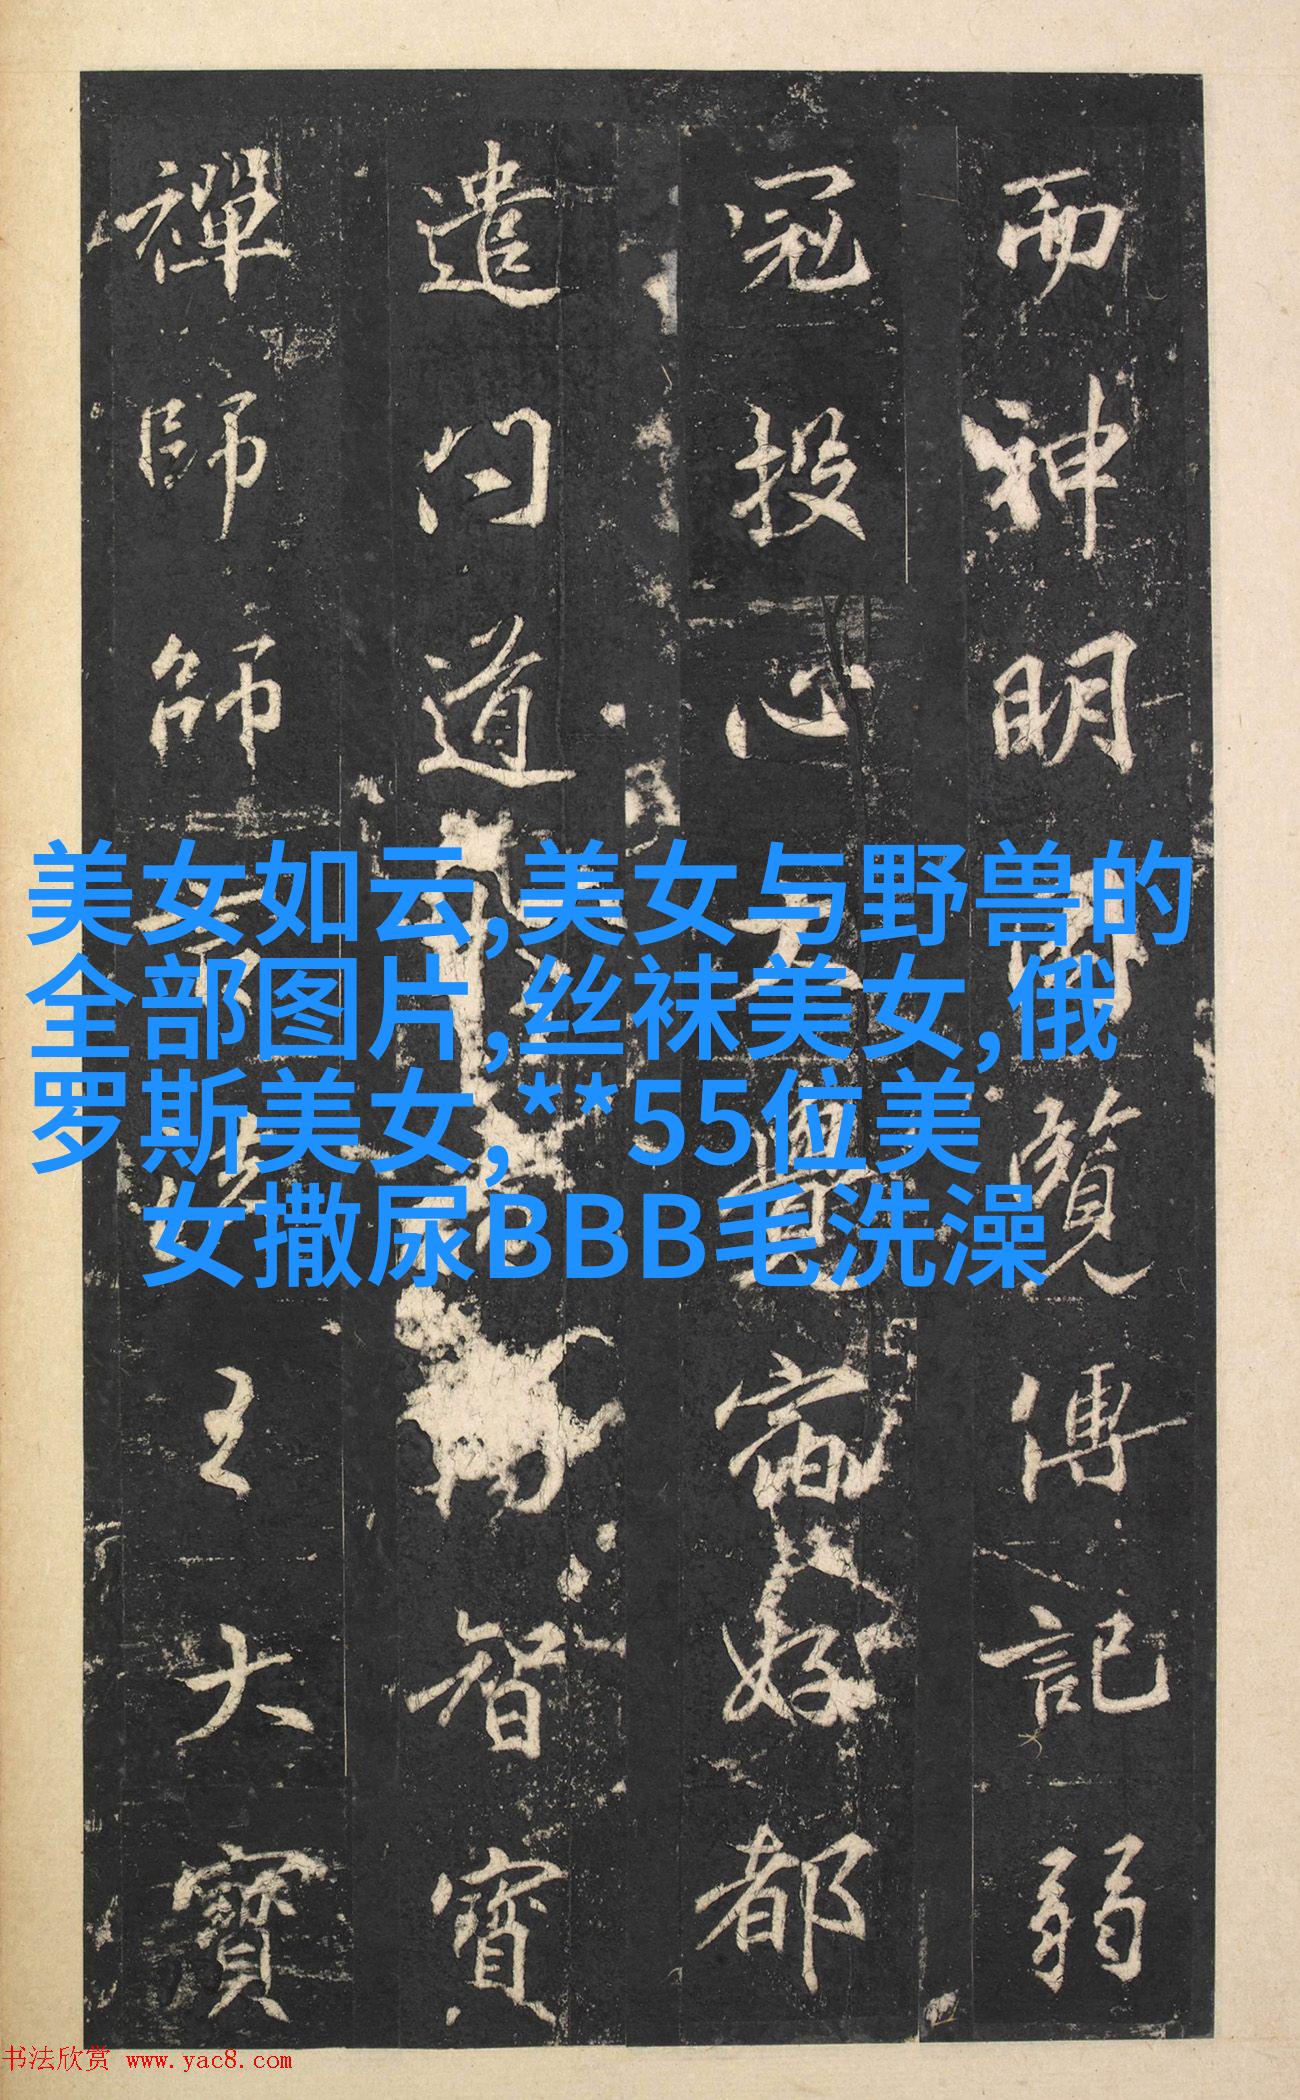 而神明覽傳記弱
冠投心五覺甯好都
遣問道智寶
禪師師言法王大寶
美女如云,美女与野兽的
全部图片,丝袜美女,俄
罗斯美女,**55位美
女撒尿BBB毛洗澡
书法欣赏 www.yac8.com